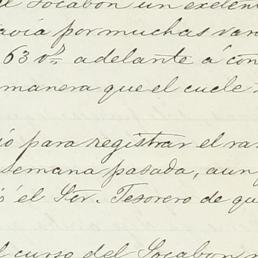 Socabon un exten
avia por muchas van
630 vs adelante á con
manera que el cuele
ó para registrar el ra
semana pasada, aun
ó el Sor. Tesorero de qu
l curso del Socabon